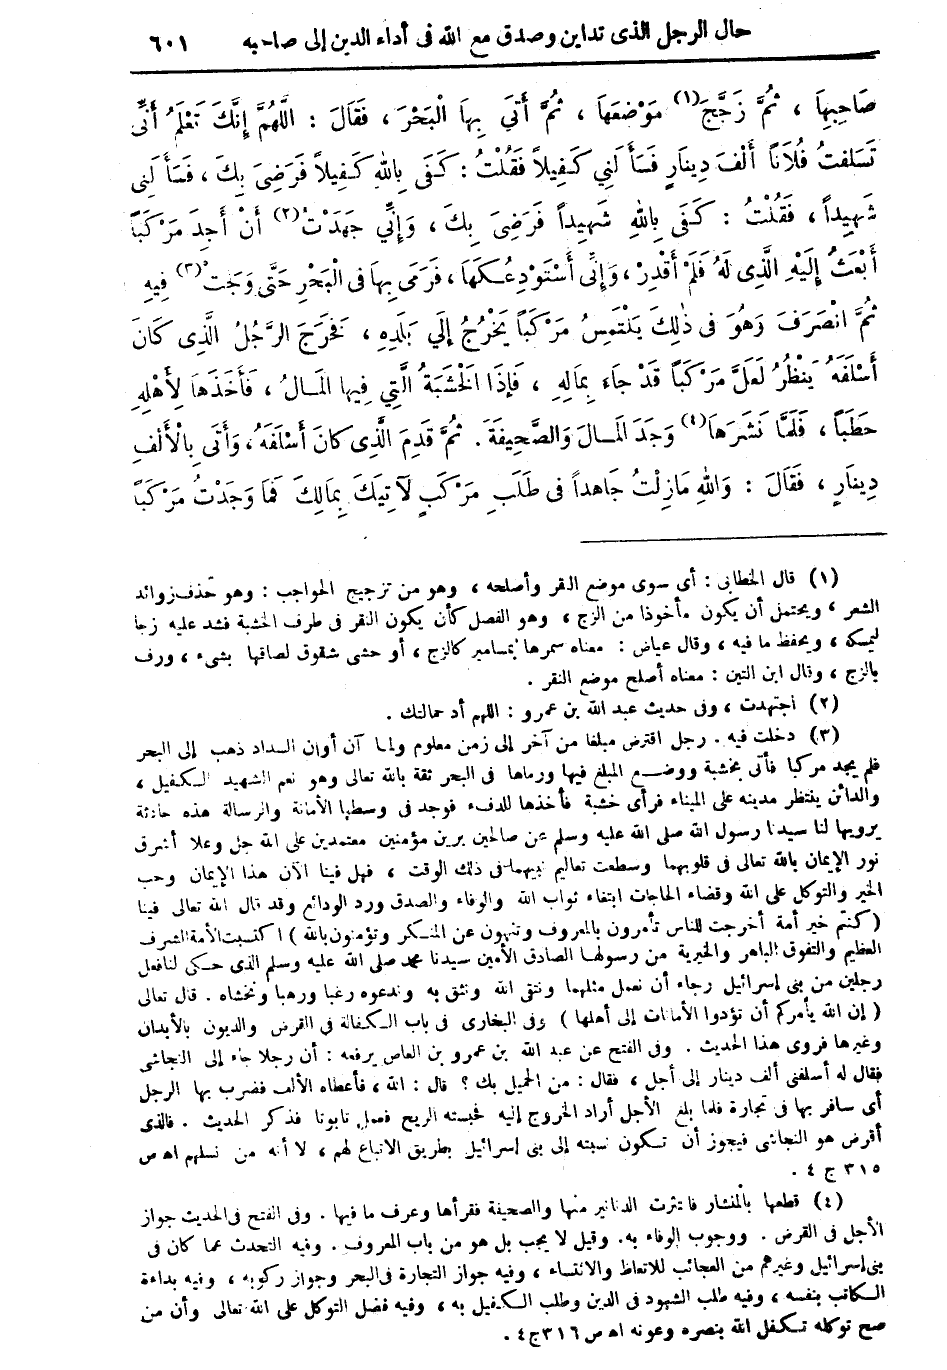 حال الرجل الذى تداين وصدق مع الله فى أداء الدين إلى صاحبه ٦٠١
صَاحِبِهَا ، ثُمَّ زَجَّجَ(١) مَوْضِعَهَا ، ثُمَّ أَتَى بِهَا الْبَحْرَ ، فَقَالَ : اللَّهُمَّ إِنَّكَ تَعْلَمُ أَنِّى
تَسَلَّفْتُ فُلَاناً أَلْفَ دِينَارٍ فَسَأَلَنِي كَفِيلاً فَقُلْتُ : كَفَى بِاللهِ كَفِيلاً فَرَضِىَ بِكَ ، فَسَأَلَنِى
شَهِيداً ، فَقُلْتُ : كَفَى بِاللهِ شَهِيداً فَرَضِىَ بِكَ ، وَإِنِّي جَهَدْتُ(٢) أَنْ أَجِدَ مَرْكَباً
أَبْعَثُ إِلَيْهِ الَّذِى لَهُ فَلَمْ أَقْدِرْ ، وَإِنِّى أَسْتَوْدِعُكَهَا ، فَرَمَى بِهَا فى الْبَحْرِ حَتَّى وَلَجَتْ(٣) فِيهِ
ثُمَّ انْصَرَفَ وَهُوَ فى ذٰلِكَ يَلْتَمِسُ مَرْكَباً يَخْرُجُ إِلَي بَلَدِهِ ، فَخَرَجَ الرَّجُلُ الَّذِى كَانَ
أَسْلَفَهُ يَنْظُرُ لَعَلَّ مَرْكَباً قَدْ جَاءَ بِمَالِهِ ، فَإِذَا الْخَشَبَةُ الَّتِي فِيهَا الْمَالُ ، فَأَخَذَهَا لِأَهْلِهِ
حَطَباً ، فَلَمَّا نَشَرَهَا(٤) وَجَدَ الْمَالَ وَالصَّحِيفَةَ . ثُمَّ قَدِمَ الَّذِى كَانَ أَسْلَفَهُ ، وَأَتَى بِالْأَلْفِ
دِينَارٍ ، فَقَالَ : وَاللهِ مَازِلْتُ جَاهِداً فى طَلَبِ مَرْكَبٍ لآتِيَكَ بِمَالِكَ فَمَا وَجَدْتُ مَرْكَباً
(١) قال الخطابى : أى سوى موضع النقر وأصلحه ، وهو من تزجيج الحواجب : وهو حذف زوائد
الشعر ، ويحتمل أن يكون مأخوذا من الزج ، وهو الفصل كأن يكون النقر فى طرف الخشبة فشد عليه زجا
ليمسكه ، ويحفظ ما فيه ، وقال عياض : معناه سمرها بمسامير كالزج ، أو حشى شقوق لصاقها بشىء ، ورف
بالزج ، وقال ابن التين : معناه أصلح موضع النقر .
(٢) اجتهدت ، وفى حديث عبد الله بن عمرو : اللهم أد حمالتك .
(٣) دخلت فيه . رجل اقترض مبلغا من آخر إلى زمن معلوم ولما آن أوان السداد ذهب إلى البحر
فلم يجد مركبا فأتى بخشبة ووضع المبلغ فيها ورماها فى البحر ثقة بالله تعالى وهو نعم الشهيد الكفيل ،
والدائن ينتظر مدينه على الميناء فرأى خشبة فأخذها للدفء فوجد فى وسطها الأمانة والرسالة هذه حادثة
يرويها لنا سيدنا رسول الله صلى الله عليه وسلم عن صالحين برين مؤمنين معتمدين على الله جل وعلا أشرق
نور الإيمان بالله تعالى فى قلوبهما وسطعت تعاليم نبيهما فى ذلك الوقت ، فهل فينا الآن هذا الإيمان وحب
الخير والتوكل على الله وقضاء الحاجات ابتغاء ثواب الله والوفاء والصدق ورد الودائع وقد قال الله تعالى فينا
(كنتم خير أمة أخرجت للناس تأمرون بالمعروف وتنهون عن المنكر وتؤمنون بالله) اكتسبت الأمة الشرف
العظيم والتفوق الباهر والخيرية من رسولها الصادق الأمين سيدنا محمد صلى الله عليه وسلم الذى حكى لنا فعل
رجلين من بنى إسرائيل رجاء أن نعمل مثلهما ونتقى الله ونثق به وندعوه رغبا ورهبا ونخشاه . قال تعالى
(إن الله يأمركم أن تؤدوا الأمانات إلى أهلها) وفى البخارى فى باب الكفالة فى القرض والديون بالأبدان
وغيرها فروى هذا الحديث . وفى الفتح عن عبد الله بن عمرو بن العاص يرفعه : أن رجلا جاء إلى النجاشى
فقال له أسلفنى ألف دينار إلى أجل ، فقال : من الحميل بك ؟ قال : الله ، فأعطاه الألف فضرب بها الرجل
أى سافر بها فى تجارة فلما بلغ الأجل أراد الخروج إليه فحبسته الريح فعمل تابوتا فذكر الحديث . فالذى
أقرض هو النجاشى فيجوز أن تكون نسبته إلى بنى إسرائيل بطريق الاتباع لهم ، لا أنه من نسلهم اه ص
٣١٥ ج ٤ .
(٤) قطعها بالمنشار فانتثرت الدنانير منها والصحيفة فقرأها وعرف ما فيها . وفى الفتح فى الحديث جواز
الأجل فى القرض . ووجوب الوفاء به . وقيل لا يجب بل هو من باب المعروف . وفيه التحدث عما كان فى
بنى إسرائيل وغيرهم من العجائب للاتعاظ والائتساء ، وفيه جواز التجارة فى البحر وجواز ركوبه ، وفيه بداءة
الكاتب بنفسه ، وفيه طلب الشهود فى الدين وطلب الكفيل به ، وفيه فضل التوكل على الله تعالى وأن من
صح توكله تكفل الله بنصره وعونه اه ص ٣١٦ ج ٤ .